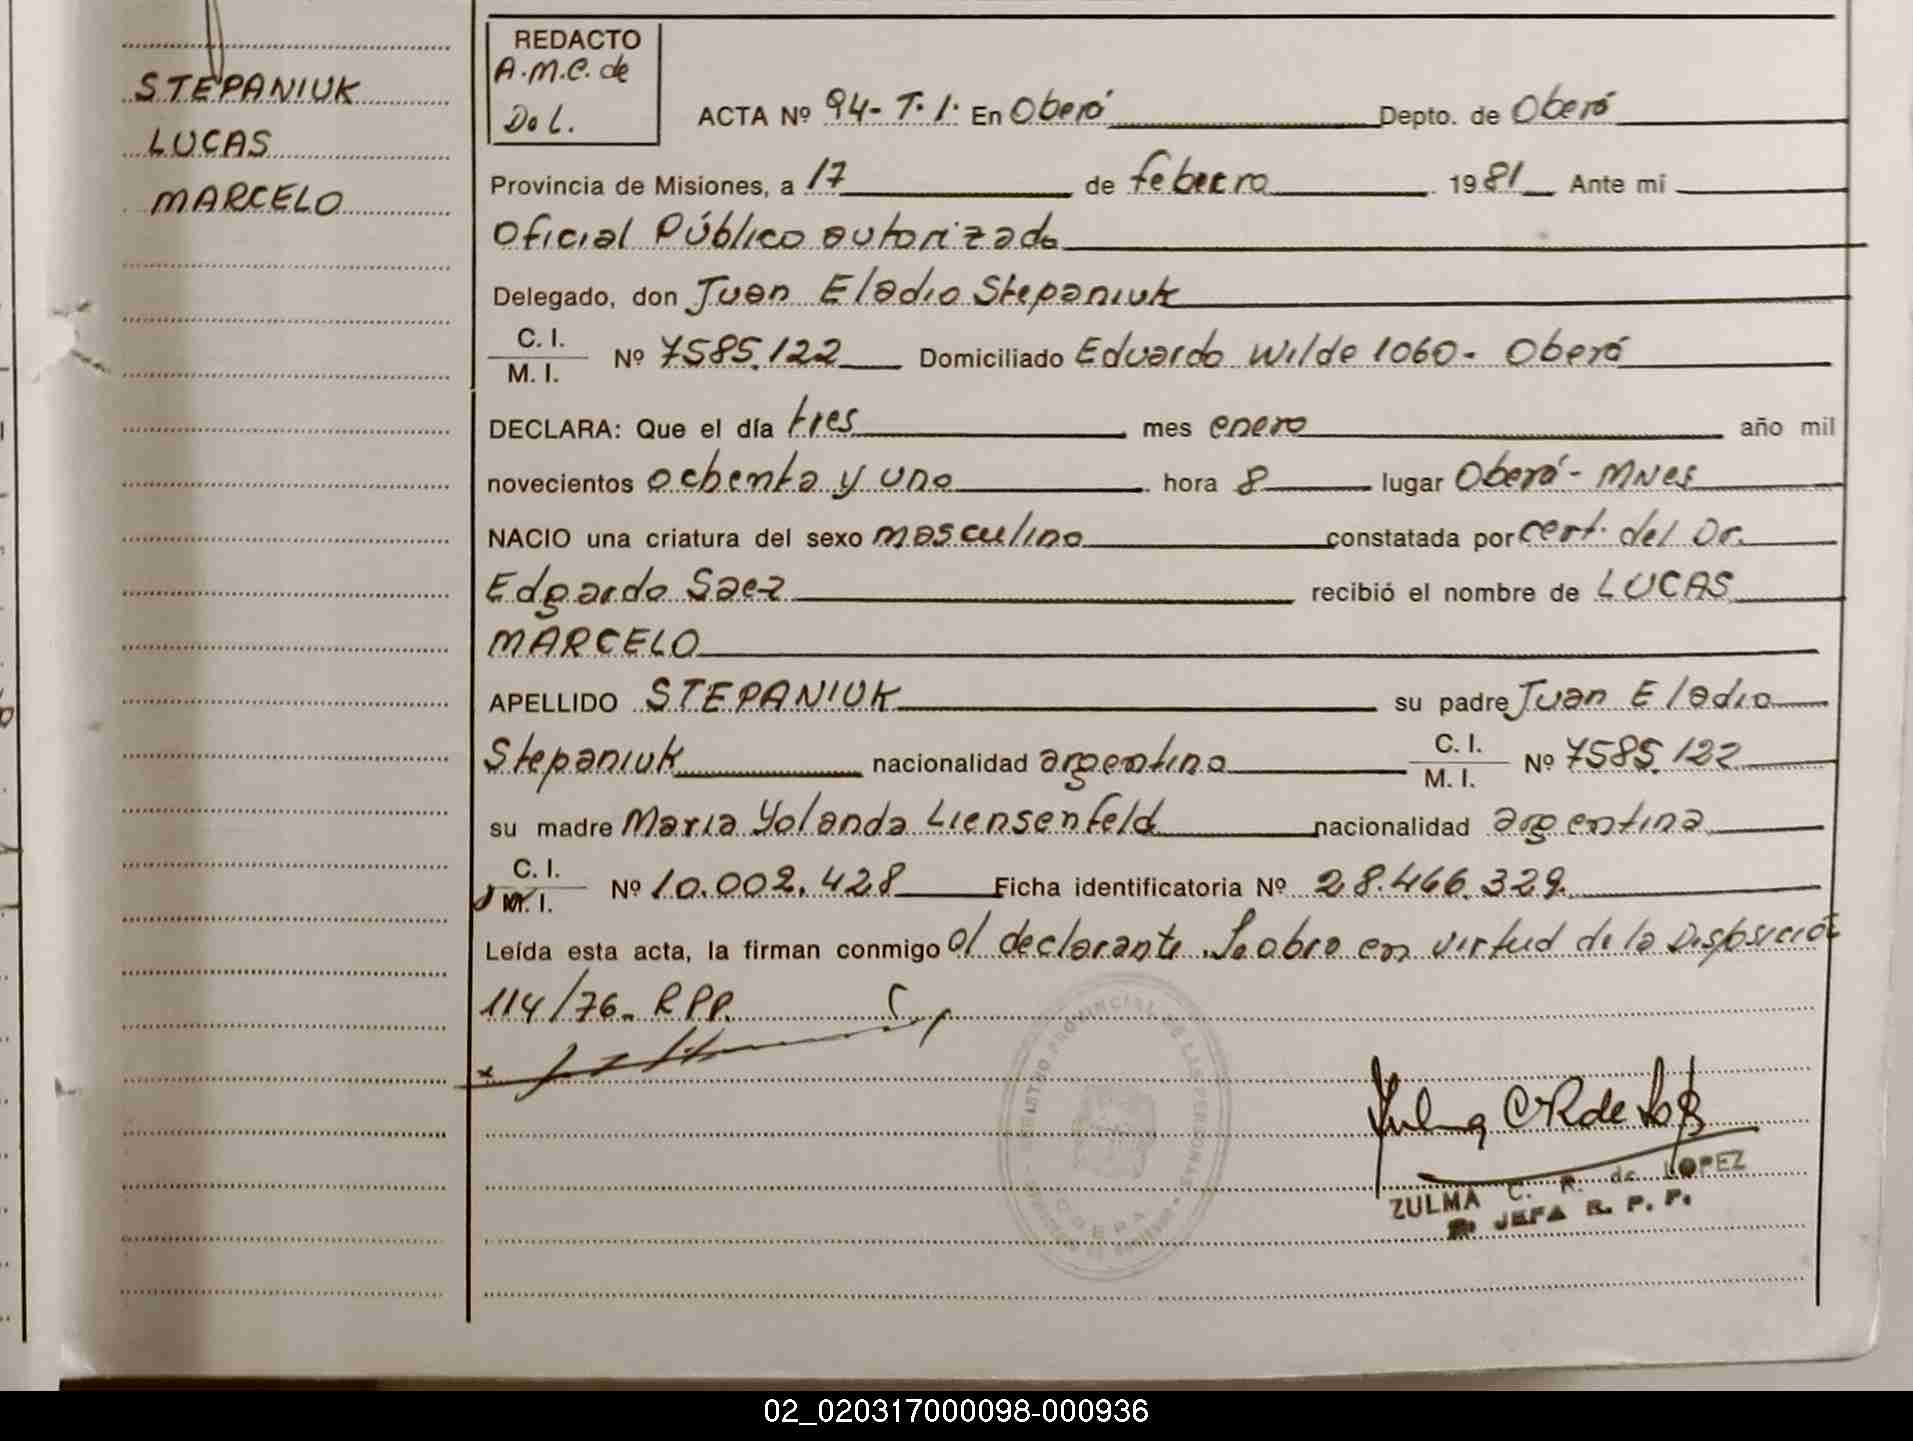 STEPANIUK
LUCAS
MARCELO
REDACTO
A.M.C. de
Do L.
ACTA Nº 94- T. I. En Oberá Depto. de Oberá
Provincia de Misiones, a 17 de febrero 1981 Ante mi
Oficial Público autorizado
Delegado, don Juan Eladio Stepaniuk
C. I.
M. I. Nº 7585.122 Domiciliado Eduardo Wilde 1060- Oberá
DECLARA: Que el día tres mes enero año mil
novecientos ochenta y uno hora 8 lugar Oberá- MNes
NACIO una criatura del sexo masculino constatada por cert. del Dr.
Edgardo Saez recibió el nombre de LUCAS
MARCELO
APELLIDO STEPANIUK su padre Juan Eladio
Stepaniuk nacionalidad argentina C. I.
M. I. Nº 7585.122
su madre Maria Yolanda Liensenfeld nacionalidad argentina
C. I.
M. I. Nº 10.002.428 Ficha identificatoria Nº 28.466.329.
Leída esta acta, la firman conmigo el declarante. Se abre en virtud de la Disposición
114/76- RPP.
REGISTRO PROVINCIAL DE LAS PERSONAS
OBERA
Zulma C R de Lopez
ZULMA C. R. de LOPEZ
JEFA R. P. P.
02_020317000098-000936